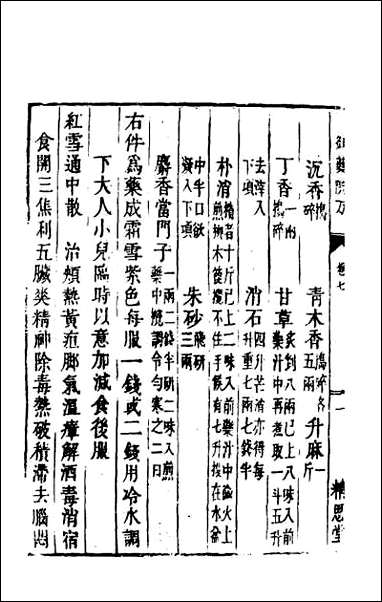 御藥院方 卷七 一 精思堂
沉香搗碎 青木香五兩搗碎各 升麻一斤
丁香一兩搗碎 甘草炙剉八兩已上八味入前藥汁中再煮取一斗五升
去滓入下項 消石四升芒消亦得每升重七兩七銖半
朴消精者十斤已上二味入前藥汁中微火上煎柳木篦攪不住手候有七升投在水盆
中半日欲凝入下項 朱砂三兩飛研
麝香當門子一兩二銖半研二味入前藥中攪調令勻寒之二日
右件為藥成霜雪紫色每服一錢或二錢用冷水調
下大人小兒臨時以意加減食後服
紅雪通中散 治煩熱黃疸脚氣溫瘴解酒毒消宿
食開三焦利五臟爽精神除毒熱破積滯去腦悶